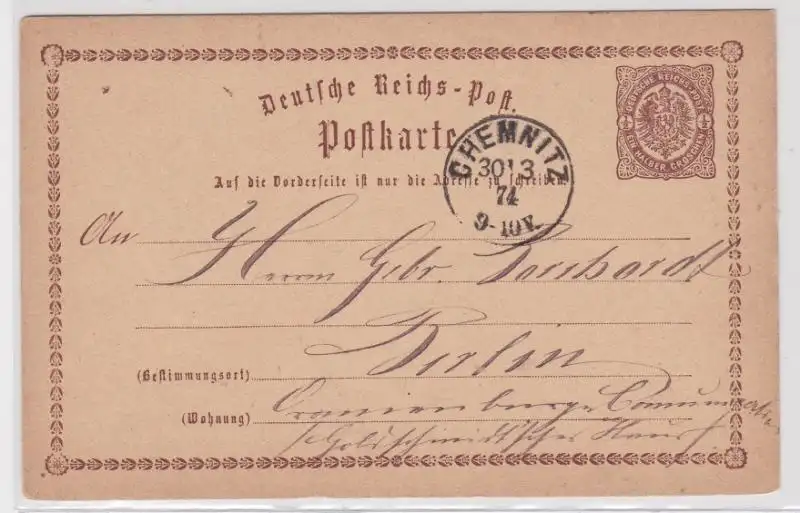 Deutsche Reichs-Post.
Postkarte
DEUTSCHE REICHS-POST
½ ½
EIN HALBER GROSCHEN
Auf die Vorderseite ist nur die Adresse zu schreiben.
CHEMNITZ
30 3
74
9-10V.
An Herrn Gebr. Borchardt
Berlin
(Bestimmungsort)
(Wohnung) Oranienburger Communication
(Goldschmidt'sches Haus)